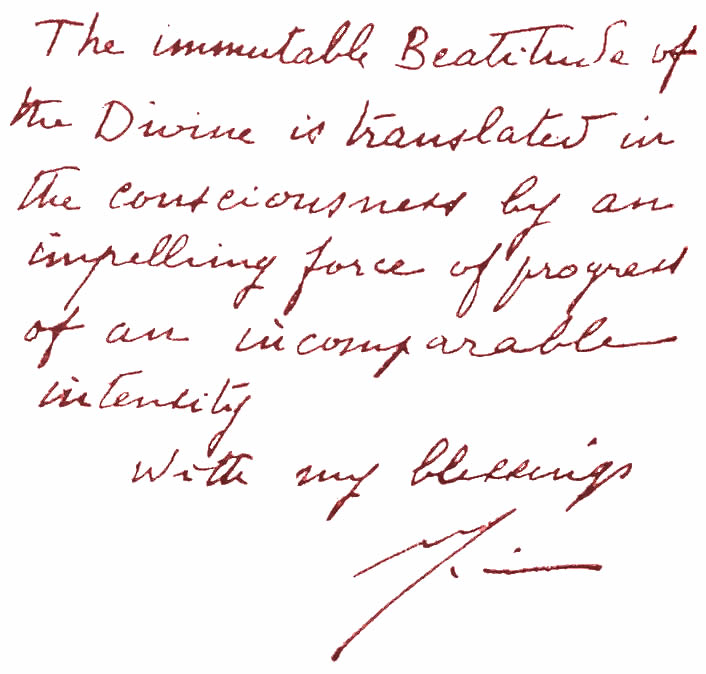 The immutable Beatitude of
the Divine is translated in
the consciousness by an
impelling force of progress
of an incomparable
intensity
With my blessings